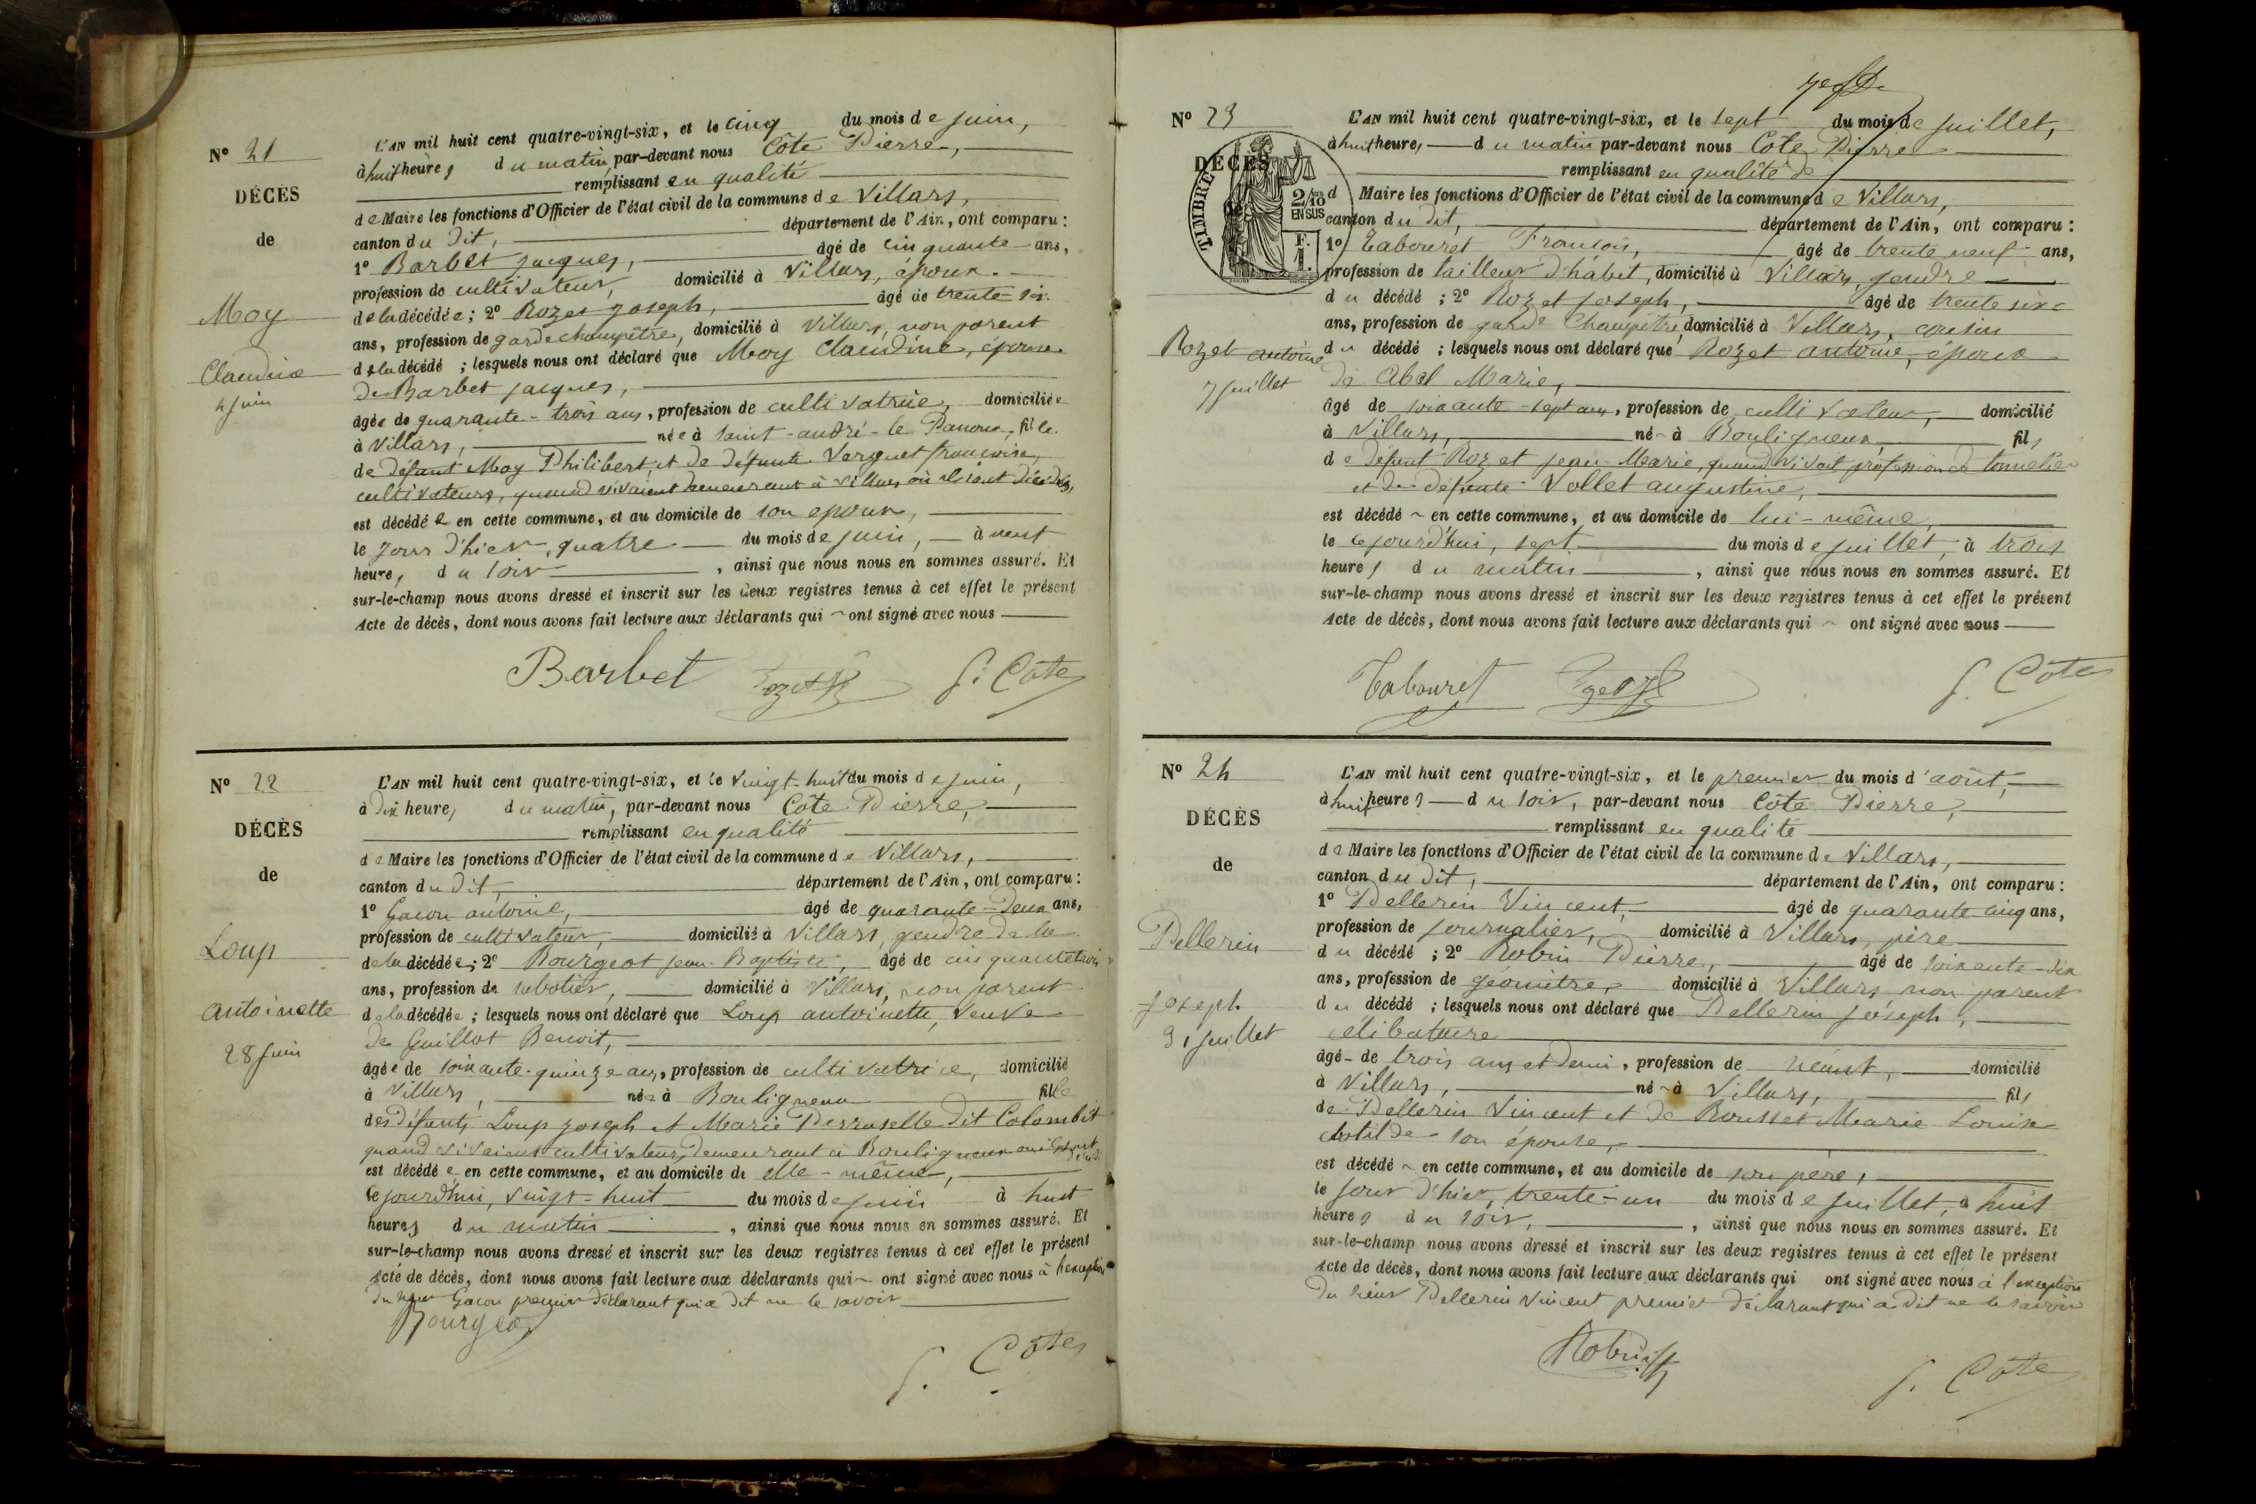 N° 21
DÉCÈS
de
Moy
Claudine
4 juin
L'AN mil huit cent quatre-vingt-six, et le cinq du mois de juin,
à huit heures du matin, par-devant nous Côte Pierre,
remplissant en qualité
de Maire les fonctions d'Officier de l'état civil de la commune de Villars,
canton du dit, département de l'Ain, ont comparu :
1° Barbet jacques, âgé de cinquante ans,
profession de cultivateur, domicilié à Villars, époux
de la décédée ; 2° Rozet joseph, âgé de trente six
ans, profession de garde champêtre, domicilié à Villars, non parent
de la décédé ; lesquels nous ont déclaré que Moy Claudine, épouse
de Barbet jacques,
âgée de quarante-trois ans, profession de cultivatrice, domiciliée
à Villars, née à saint-andré-le Panoux, fille
de défunt Moy Philibert, et de défunte françoise,
cultivateurs, quand vivaient demeurant à Villars où ils sont décédés,
est décédée en cette commune, et au domicile de son epoux,
le jour d'hier, quatre du mois de juin, à neuf
heures du soir, ainsi que nous nous en sommes assuré. Et
sur-le-champ nous avons dressé et inscrit sur les deux registres tenus à cet effet le présent
Acte de décès, dont nous avons fait lecture aux déclarants qui ~ ont signé avec nous
Barbet Rozet P. Côte
N° 22
DÉCÈS
de
Loup
antoinette
28 juin
L'AN mil huit cent quatre-vingt-six, et le vingt-huit du mois de juin,
à dix heures du matin, par-devant nous Côte Pierre,
remplissant en qualité
de Maire les fonctions d'Officier de l'état civil de la commune de Villars,
canton du dit, département de l'Ain, ont comparu :
1° Gacon antoine, âgé de quarante-deux ans,
profession de cultivateur, domicilié à Villars, gendre de la
de la décédée ; 2° Bourgeot jean-Baptiste, âgé de cinquante trois
ans, profession de sabotier, domicilié à Villars, non parent
de la décédée ; lesquels nous ont déclaré que Loup antoinette, veuve
de Guillot Benoit,
âgée de soixante-quinze ans, profession de cultivatrice, domicilié
à Villars, née à Bouligneux fille
des défunts Loup joseph et Marie Perruselle dit Colombit
quand vivaient cultivateurs demeurant à Bouligneux où ils sont
est décédée en cette commune, et au domicile de elle-même,
le jourd'hui, vingt-huit du mois de juin à huit
heures du matin, ainsi que nous nous en sommes assuré. Et
sur-le-champ nous avons dressé et inscrit sur les deux registres tenus à cet effet le présent
Acte de décès, dont nous avons fait lecture aux déclarants qui ~ ont signé avec nous à l'exception
du sieur Gacon premier déclarant qui a dit ne le savoir
Bourgeot
P. Côte
N° 23
DÉCÈS
de
TIMBRE
2/10 EN SUS
F. 1.
Rozet antoine
7 juillet
L'AN mil huit cent quatre-vingt-six, et le sept du mois de juillet,
à huit heures du matin par-devant nous Côte Pierre
remplissant en qualité de
d Maire les fonctions d'Officier de l'état civil de la commune de Villars,
canton du dit, département de l'Ain, ont comparu :
1° Tabouret François, âgé de trente neuf ans,
profession de tailleur d'habit, domicilié à Villars, gendre
du décédé ; 2° Rozet joseph, âgé de trente six
ans, profession de garde champêtre, domicilié à Villars, cousin
du décédé ; lesquels nous ont déclaré que Rozet antoine, époux
de Abel Marie,
âgé de soixante-sept ans, profession de cultivateur, domicilié
à Villars, né ~ à Bouligneux, fils
de défunt Rozet jean Marie, quand vivait profession de tonnelier
et de défunte Vollet augustine,
est décédé ~ en cette commune, et au domicile de lui-même,
le cejourd'hui, sept du mois de juillet, à trois
heures du matin, ainsi que nous nous en sommes assuré. Et
sur-le-champ nous avons dressé et inscrit sur les deux registres tenus à cet effet le présent
Acte de décès, dont nous avons fait lecture aux déclarants qui ~ ont signé avec nous
Tabouret Rozet P. Côte
N° 24
DÉCÈS
de
Pellerin
joseph
31 juillet
L'AN mil huit cent quatre-vingt-six, et le premier du mois d'août,
à huit heures du soir, par-devant nous Côte Pierre,
remplissant en qualité
de Maire les fonctions d'Officier de l'état civil de la commune de Villars,
canton du dit, département de l'Ain, ont comparu :
1° Pellerin Vincent, âgé de quarante cinq ans,
profession de journalier, domicilié à Villars, père
du décédé ; 2° Robin Pierre, âgé de soixante-dix
ans, profession de géomètre, domicilié à Villars non parent
du décédé ; lesquels nous ont déclaré que Pellerin joseph,
célibataire
âgé de trois ans et demi, profession de néant, domicilié
à Villars, né ~ à Villars, fils
de Pellerin Vincent et de Rousset Marie Louise
clotilde son épouse,
est décédé ~ en cette commune, et au domicile de son père,
le jour d'hier, trente-un du mois de juillet, à huit
heures du soir, ainsi que nous nous en sommes assuré. Et
sur-le-champ nous avons dressé et inscrit sur les deux registres tenus à cet effet le présent
Acte de décès, dont nous avons fait lecture aux déclarants qui ont signé avec nous à l'exception
du sieur Pellerin Vincent premier déclarant qui a dit ne le savoir
Robin
P. Côte